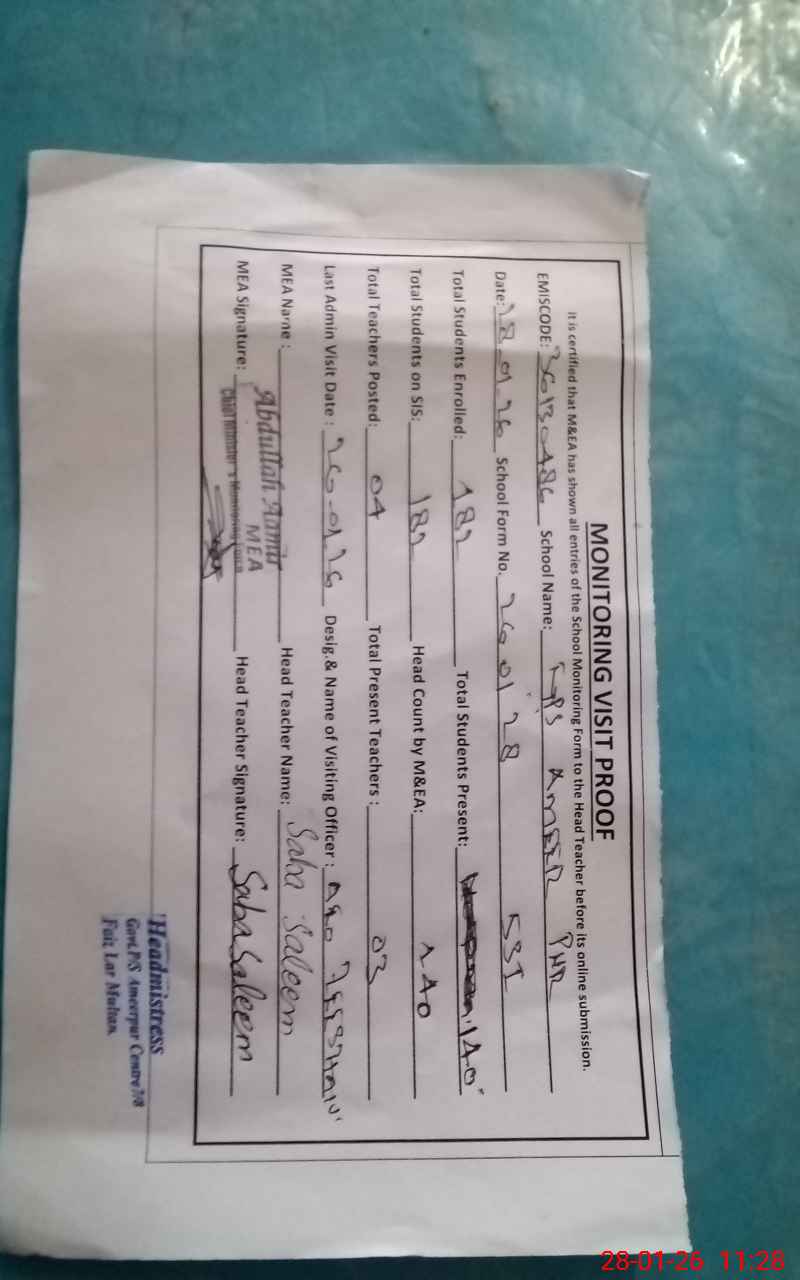 MONITORING VISIT PROOF
It is certified that M&EA has shown all entries of the School Monitoring Form to the Head Teacher before its online submission.
EMISCODE: 36130486 School Name: GPS AMEER PUR
Date: 28.01.26 School Form No. 26 01 28 531
Total Students Enrolled: 182 Total Students Present: 140
Total Students on SIS: 182 Head Count by M&EA: 140
Total Teachers Posted: 04 Total Present Teachers : 03
Last Admin Visit Date : 26-01-26 Desig.& Name of Visiting Officer :
MEA Name : Abdullah Aamir Head Teacher Name: Saba Saleem
MEA
Chief Minister's Monitoring Force
MEA Signature: Head Teacher Signature: Saba Saleem
Headmistress
Govt.P/S Ameerpur Centre 7/8
Faiz, Lar Multan.
28-01-26 11:28